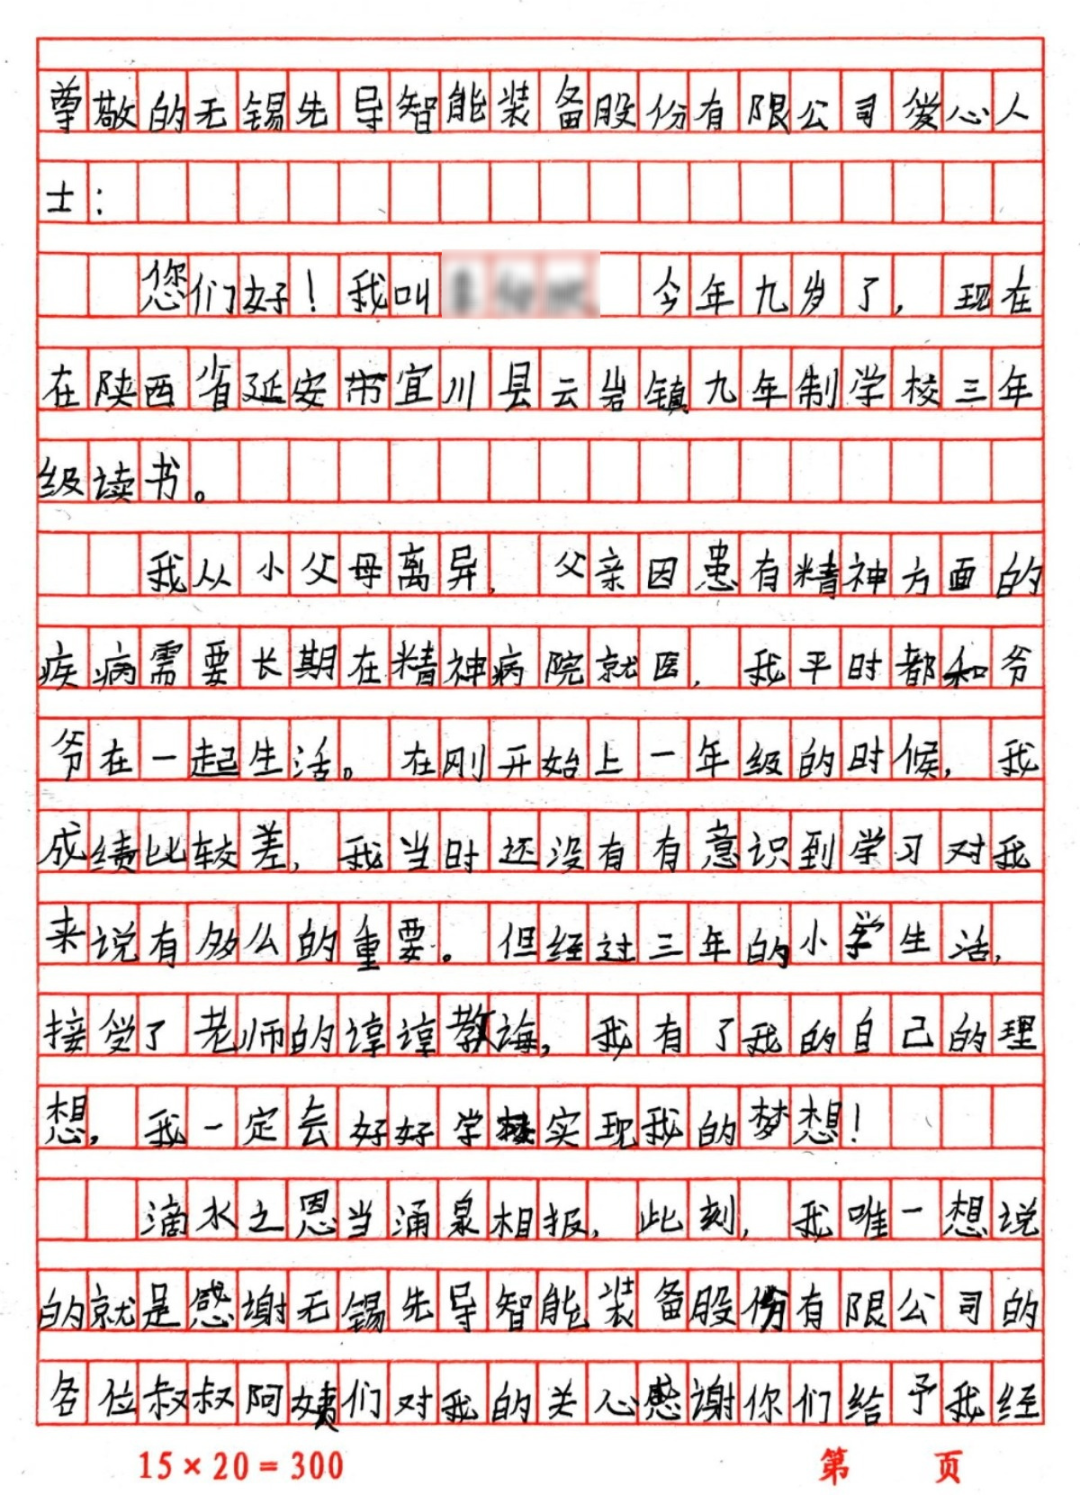 尊敬的无锡先导智能装备股份有限公司爱心人
士：
您们好！我叫 今年九岁了，现在
在陕西省延安市宜川县云岩镇九年制学校三年
级读书。
我从小父母离异，父亲因患有精神方面的
疾病需要长期在精神病院就医，我平时都和爷
爷在一起生活。在刚开始上一年级的时候，我
成绩比较差，我当时还没有有意识到学习对我
来说有多么的重要。但经过三年的小学生活，
接受了老师的谆谆教诲，我有了我的自己的理
想，我一定会好好学实现我的梦想！
滴水之恩当涌泉相报，此刻，我唯一想说
的就是感谢无锡先导智能装备股份有限公司的
各位叔叔阿姨们对我的关心感谢你们给予我经
15×20=300
第 页